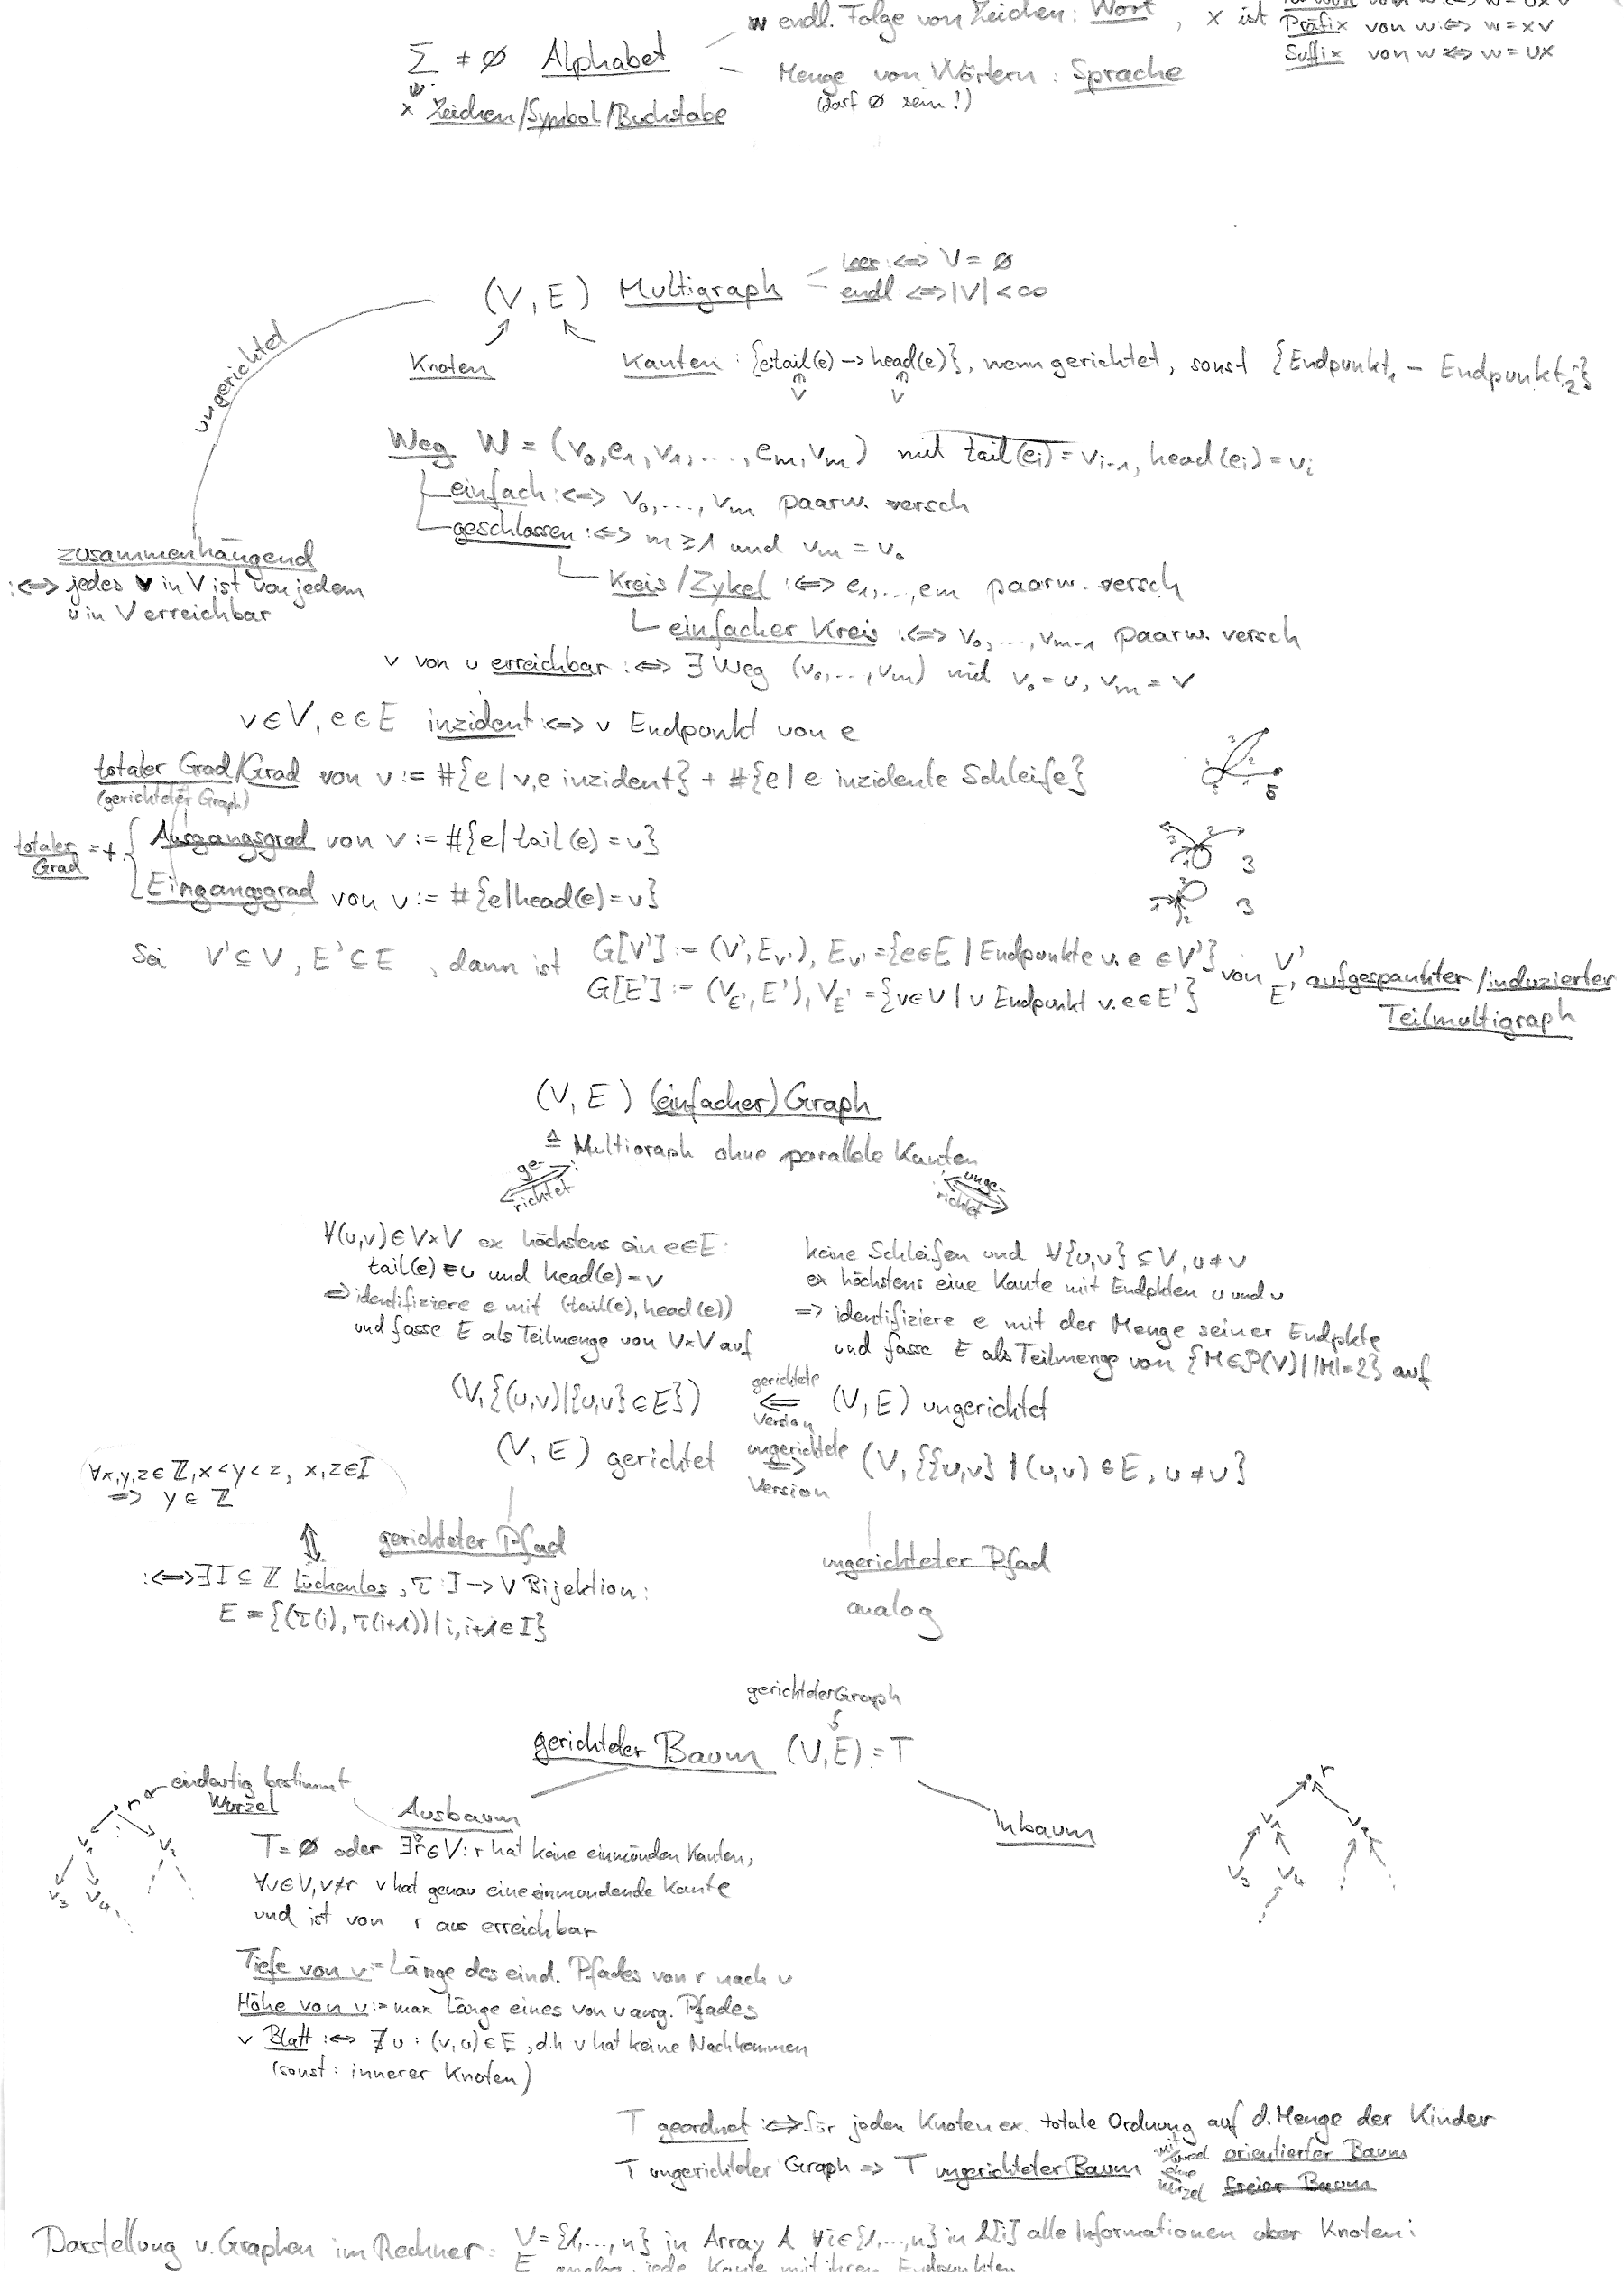 w endl. Folge von Zeichen: Wort, x ist
Präfix von w :<=> w = xv
Suffix von w <=> w = ux
Σ ≠ ∅ Alphabet
Menge von Wörtern: Sprache
(darf ∅ sein!)
x Zeichen/Symbol/Buchstabe
(V, E) Multigraph
leer :<=> V = ∅
endl. :<=> |V| < ∞
ungerichtet
Knoten
Kanten: {e: tail(e) -> head(e)}, wenn gerichtet, sonst {Endpunkt₁ - Endpunkt₂}
V V
Weg W = (v₀, e₁, v₁, ..., eₘ, vₘ) mit tail(eᵢ) = vᵢ₋₁, head(eᵢ) = vᵢ
einfach :<=> v₀, ..., vₘ paarw. versch
geschlossen :<=> m ≥ 1 und vₘ = v₀
Kreis/Zykel :<=> e₁, ..., eₘ paarw. versch
einfacher Kreis :<=> v₀, ..., vₘ₋₁ paarw. versch
zusammenhängend
:<=> jedes v in V ist von jedem
u in V erreichbar
v von u erreichbar :<=> ∃ Weg (v₀, ..., vₘ) mit v₀ = u, vₘ = v
v ∈ V, e ∈ E inzident :<=> v Endpunkt von e
totaler Grad/Grad von v := #{e | v, e inzident} + #{e | e inzidente Schleife}
(gerichteter Graph)
5
totaler Grad = +
Ausgangsgrad von v := #{e | tail(e) = v}
3
Eingangsgrad von v := #{e | head(e) = v}
3
Sei V' ⊆ V, E' ⊆ E, dann ist
G[V'] := (V', E_V'), E_V' = {e ∈ E | Endpunkte v. e ∈ V'}
G[E'] := (V_E', E'), V_E' = {v ∈ V | v Endpunkt v. e ∈ E'}
von V' E', aufgespannter/induzierter
Teilmultigraph
(V, E) (einfacher) Graph
≙ Multigraph ohne parallele Kanten
ge-
richtet
unge-
richtet
∀(u,v) ∈ V×V ex höchstens ein e ∈ E:
tail(e) = u und head(e) = v
=> identifiziere e mit (tail(e), head(e))
und fasse E als Teilmenge von V×V auf
keine Schleifen und ∀{u,v} ⊆ V, u ≠ v
ex höchstens eine Kante mit Endpkten u und v
=> identifiziere e mit der Menge seiner Endpkte
und fasse E als Teilmenge von {M ∈ P(V) | |M| = 2} auf
(V, {(u,v) | {u,v} ∈ E}) gerichtete Version <= (V, E) ungerichtet
(V, E) gerichtet ungerichtete Version => (V, {{u,v} | (u,v) ∈ E, u ≠ v}
∀x,y,z ∈ ℤ, x < y < z, x, z ∈ I
=> y ∈ ℤ
gerichteter Pfad
:<=> ∃ I ⊆ ℤ lückenlos, τ: I -> V Bijektion:
E = {(τ(i), τ(i+1)) | i, i+1 ∈ I}
ungerichteter Pfad
analog
gerichteter Graph
gerichteter Baum (V, E) = T
eindeutig bestimmt
Wurzel
r
v₁ v₂
v₃ v₄
Ausbaum
T = ∅ oder ∃ r ∈ V: r hat keine einmünden Kanten,
∀v ∈ V, v ≠ r v hat genau eine einmündende Kante
und ist von r aus erreichbar
Inbaum
r
v₁ v₂
v₃ v₄
Tiefe von v := Länge des eind. Pfades von r nach v
Höhe von v := max Länge eines von v ausg. Pfades
v Blatt :<=> ∄ u : (v,u) ∈ E, d.h v hat keine Nachkommen
(sonst: innerer Knoten)
T geordnet :<=> für jeden Knoten ex. totale Ordnung auf d. Menge der Kinder
T ungerichteter Graph => T ungerichteter Baum
mit Wurzel orientierter Baum
ohne Wurzel freier Baum
Darstellung v. Graphen im Rechner: V = {1, ..., n} in Array A ∀i ∈ {1, ..., n} in A[i] alle Informationen über Knoten i
E analog, jede Kante mit ihren Endpunkten